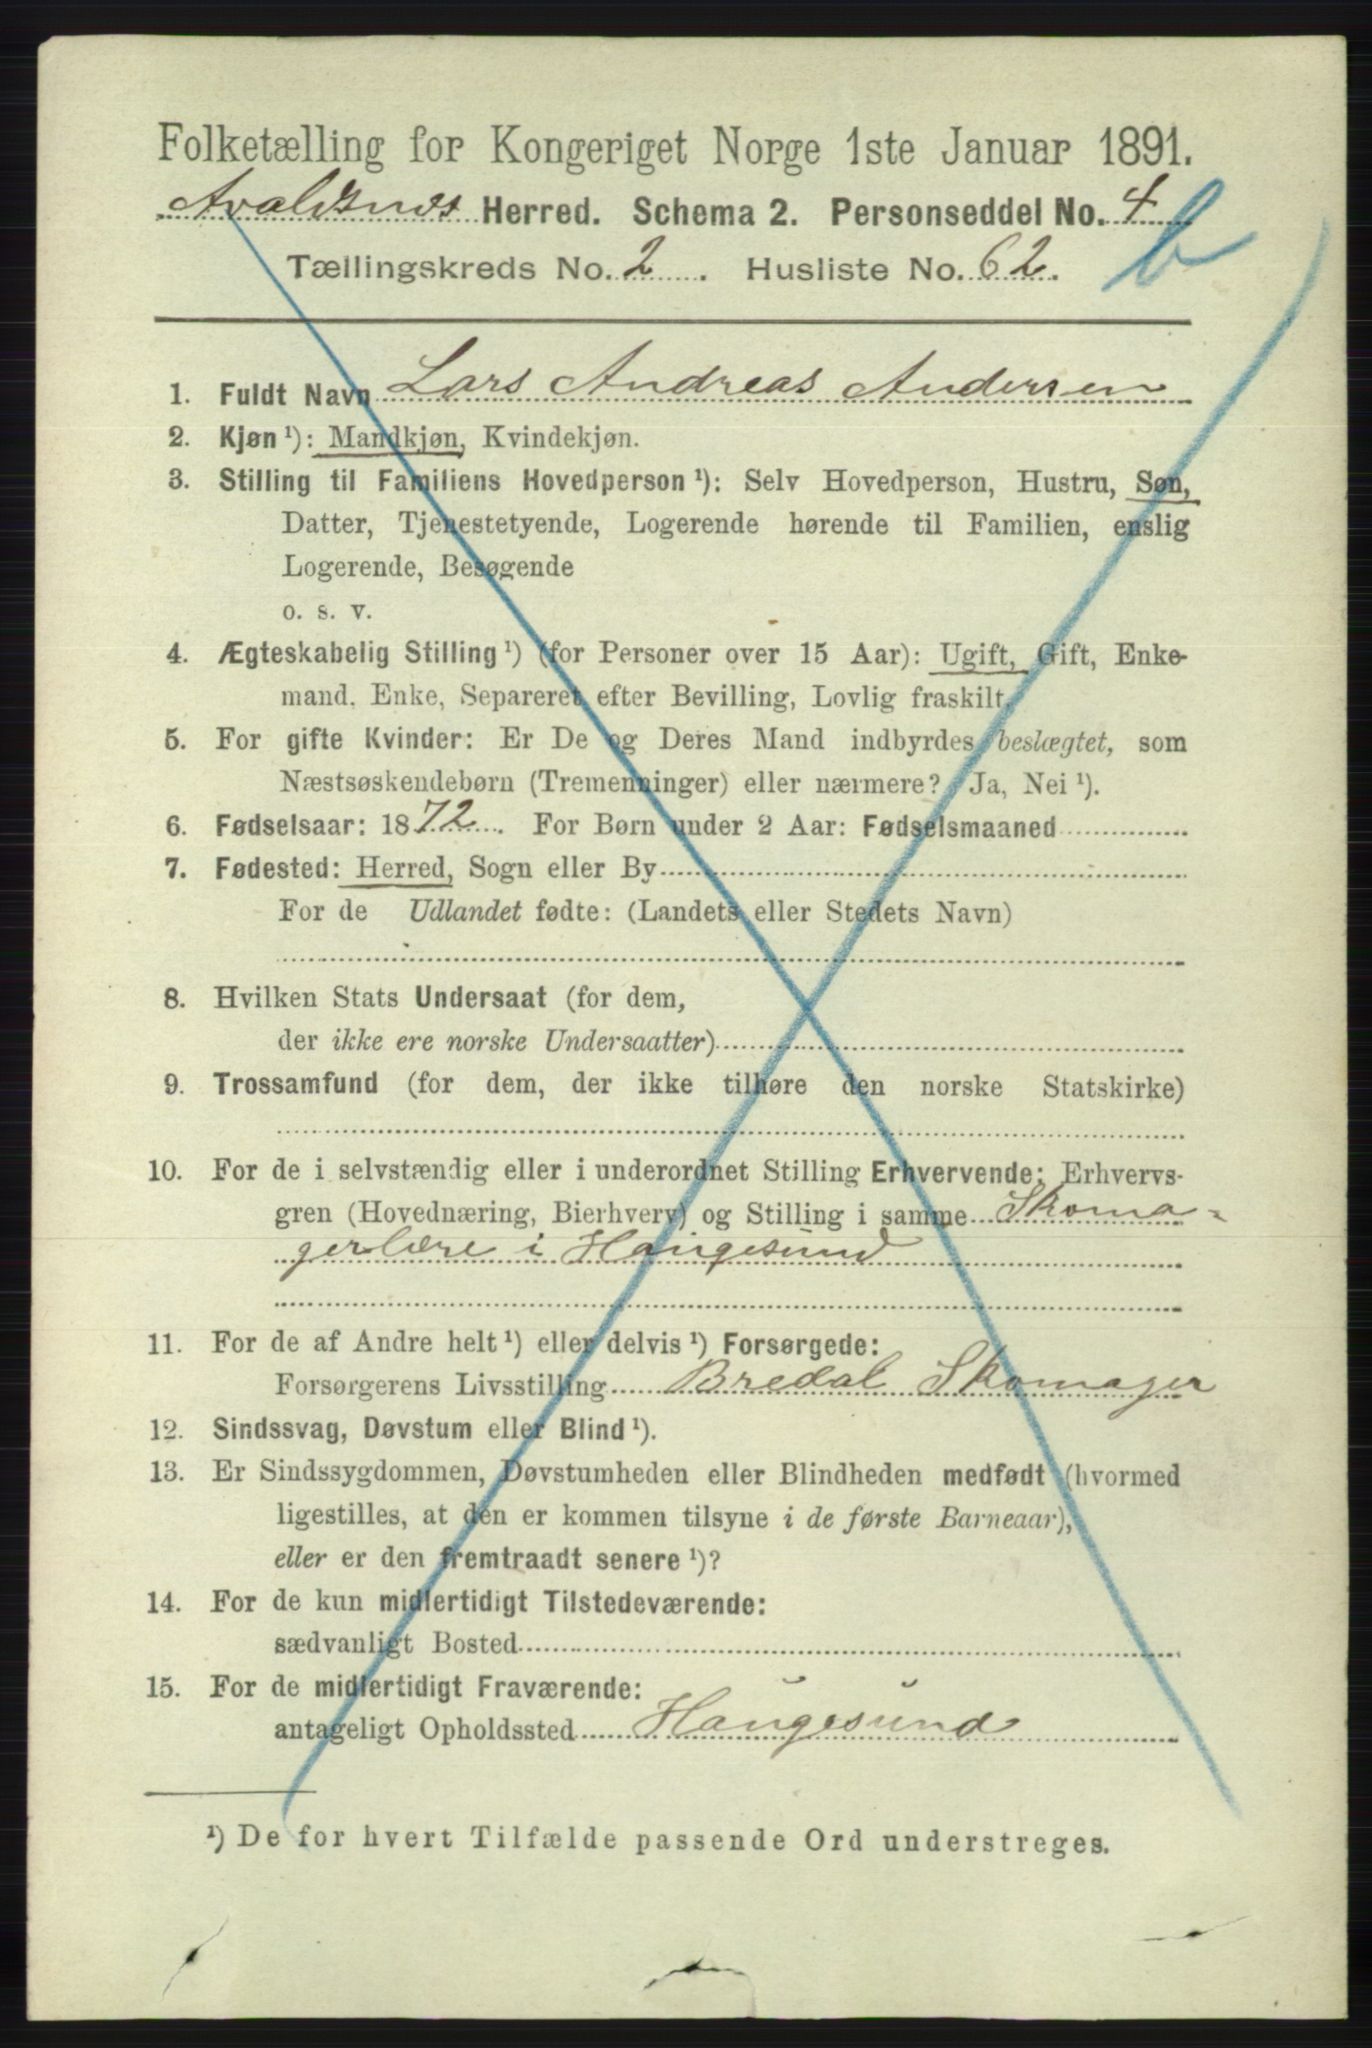 Folketælling for Kongeriget Norge 1ste Januar 1891.
Avaldsnes Herred. Schema 2. Personseddel No. 4
b
Tællingskreds No. 2. Husliste No. 62.
1. Fuldt Navn Lars Andreas Andersen
2. Kjøn¹): Mandkjøn, Kvindekjøn.
3. Stilling til Familiens Hovedperson¹): Selv Hovedperson, Hustru, Søn,
Datter, Tjenestetyende, Logerende hørende til Familien, enslig
Logerende, Besøgende
o. s. v.
4. Ægteskabelig Stilling¹) (for Personer over 15 Aar): Ugift, Gift, Enke-
mand, Enke, Separeret efter Bevilling, Lovlig fraskilt.
5. For gifte Kvinder: Er De og Deres Mand indbyrdes beslægtet, som
Næstsøskendebørn (Tremenninger) eller nærmere? Ja, Nei¹).
6. Fødselsaar: 1872. For Børn under 2 Aar: Fødselsmaaned
7. Fødested: Herred, Sogn eller By
For de Udlandet fødte: (Landets eller Stedets Navn)
8. Hvilken Stats Undersaat (for dem,
der ikke ere norske Undersaatter)
9. Trossamfund (for dem, der ikke tilhøre den norske Statskirke)
10. For de i selvstændig eller i underordnet Stilling Erhvervende: Erhvervs-
gren (Hovednæring, Bierhverv) og Stilling i samme Skoma-
gerlære i Haugesund
11. For de af Andre helt¹) eller delvis¹) Forsørgede:
Forsørgerens Livsstilling Bredal Skomager
12. Sindssvag, Døvstum eller Blind¹).
13. Er Sindssygdommen, Døvstumheden eller Blindheden medfødt (hvormed
ligestilles, at den er kommen tilsyne i de første Barneaar),
eller er den fremtraadt senere¹)?
14. For de kun midlertidigt Tilstedeværende:
sædvanligt Bosted
15. For de midlertidigt Fraværende:
antageligt Opholdssted Haugesund
¹) De for hvert Tilfælde passende Ord understreges.